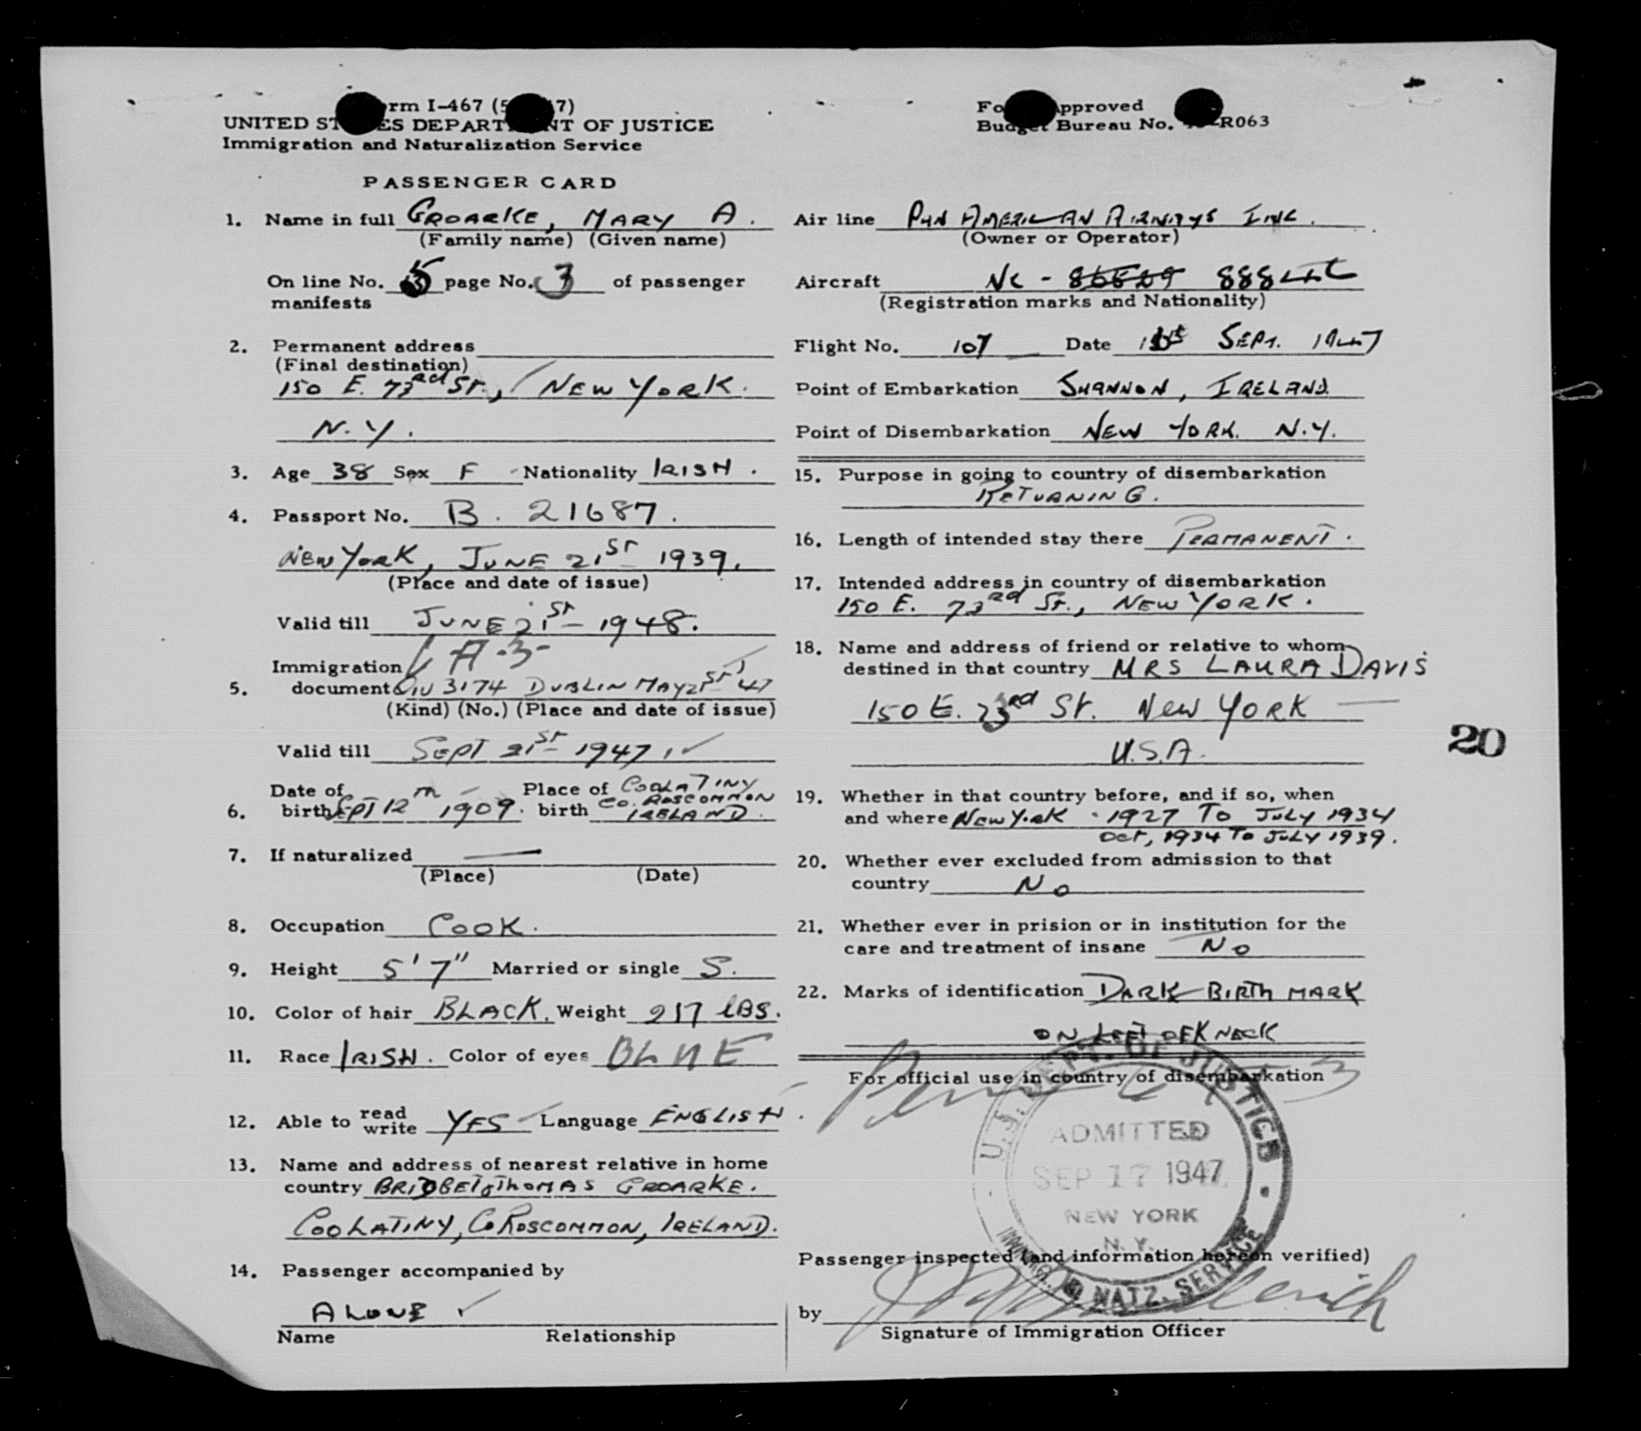 Form I-467 (5 47)
UNITED STATES DEPARTMENT OF JUSTICE
Immigration and Naturalization Service
PASSENGER CARD
1. Name in full GROARKE, MARY A.
(Family name) (Given name)
On line No. 5 page No. 3 of passenger
manifests
2. Permanent address
(Final destination)
150 E. 73rd ST., NEW YORK.
N.Y.
3. Age 38 Sex F Nationality IRISH.
4. Passport No. B. 21687.
NEW YORK, JUNE 21ST 1939.
(Place and date of issue)
Valid till JUNE 21ST 1948.
A-3
Immigration
5. document QIV 3174 DUBLIN MAY 21ST 47
(Kind) (No.) (Place and date of issue)
Valid till SEPT 21ST 1947.
6. Date of birth SEPT 12TH 1909. Place of birth COOLATINY
CO. ROSCOMMON
IRELAND.
7. If naturalized —
(Place) (Date)
8. Occupation COOK.
9. Height 5'7" Married or single S.
10. Color of hair BLACK. Weight 217 LBS.
11. Race IRISH. Color of eyes BLUE
12. Able to read write YES Language ENGLISH.
13. Name and address of nearest relative in home
country BRIDGET & THOMAS GROARKE.
COOLATINY, CO ROSCOMMON, IRELAND.
14. Passenger accompanied by
ALONE
Name Relationship
Form Approved
Budget Bureau No. R063
Air line PAN AMERICAN AIRWAYS INC.
(Owner or Operator)
Aircraft NC - 888
(Registration marks and Nationality)
Flight No. 107 Date SEPT. 1947
Point of Embarkation SHANNON, IRELAND
Point of Disembarkation NEW YORK. N.Y.
15. Purpose in going to country of disembarkation
RETURNING.
16. Length of intended stay there PERMANENT.
17. Intended address in country of disembarkation
150 E. 73rd ST., NEW YORK.
18. Name and address of friend or relative to whom
destined in that country MRS LAURA DAVIS
150 E. 73rd St. New YORK
U.S.A.
19. Whether in that country before, and if so, when
and where NEW YORK - 1927 TO JULY 1934
OCT, 1934 TO JULY 1939.
20. Whether ever excluded from admission to that
country NO
21. Whether ever in prision or in institution for the
care and treatment of insane NO
22. Marks of identification DARK BIRTH MARK
ON LEFT OF NECK
For official use in country of disembarkation
U.S. DEPT. OF JUSTICE
ADMITTED
SEP 17 1947
NEW YORK
N. Y.
IMMIG. & NATZ. SERVICE
Passenger inspected (and information hereon verified)
by
Signature of Immigration Officer
20